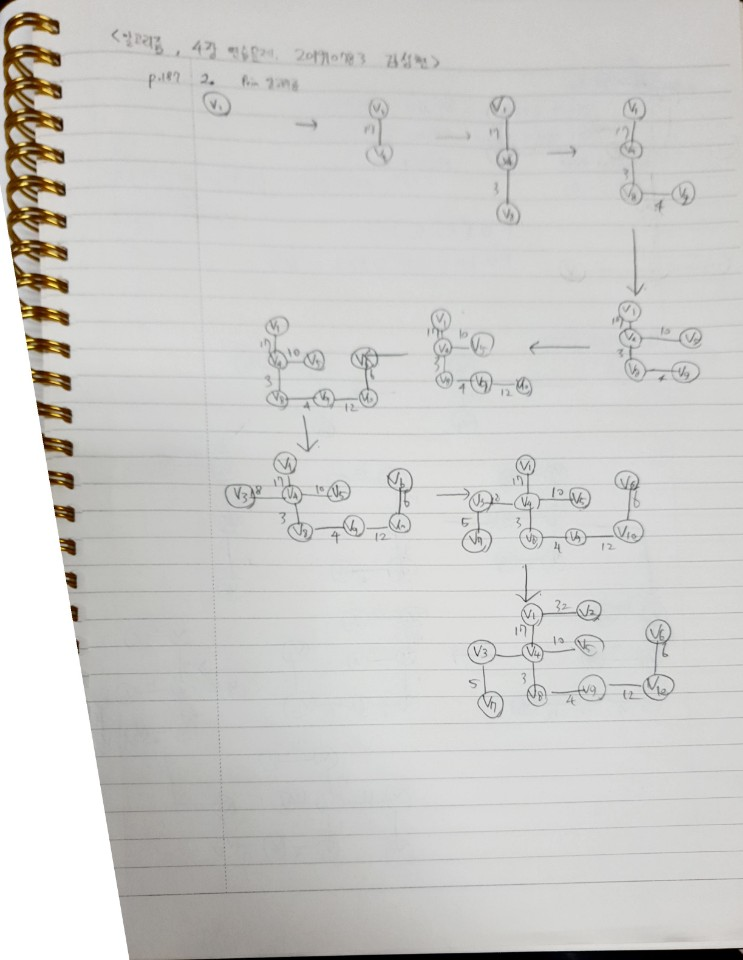 <알고리즘, 4장 연습문제. 김성현>
p.187 2. Prim 알고리즘
V1 → V1 17 V4 → V1 17 V4 3 V8 → V1 17 V4 3 V8 4 V9
V1 17 V4 10 V5 3 V8 4 V9 12 V10 6 V6
V1 17 V4 10 V5 3 V8 4 V9 12 V10
V1 17 V4 10 V5 3 V8 4 V9
V1 17 V3 8 V4 10 V5 3 V8 4 V9 12 V10 6 V6
V1 17 V3 8 V4 10 V5 5 V7 3 V8 4 V9 12 V10 6 V6
V1 32 V2
17
V3 V4 10 V5 V6
5 3 6
V7 V8 4 V9 12 V10